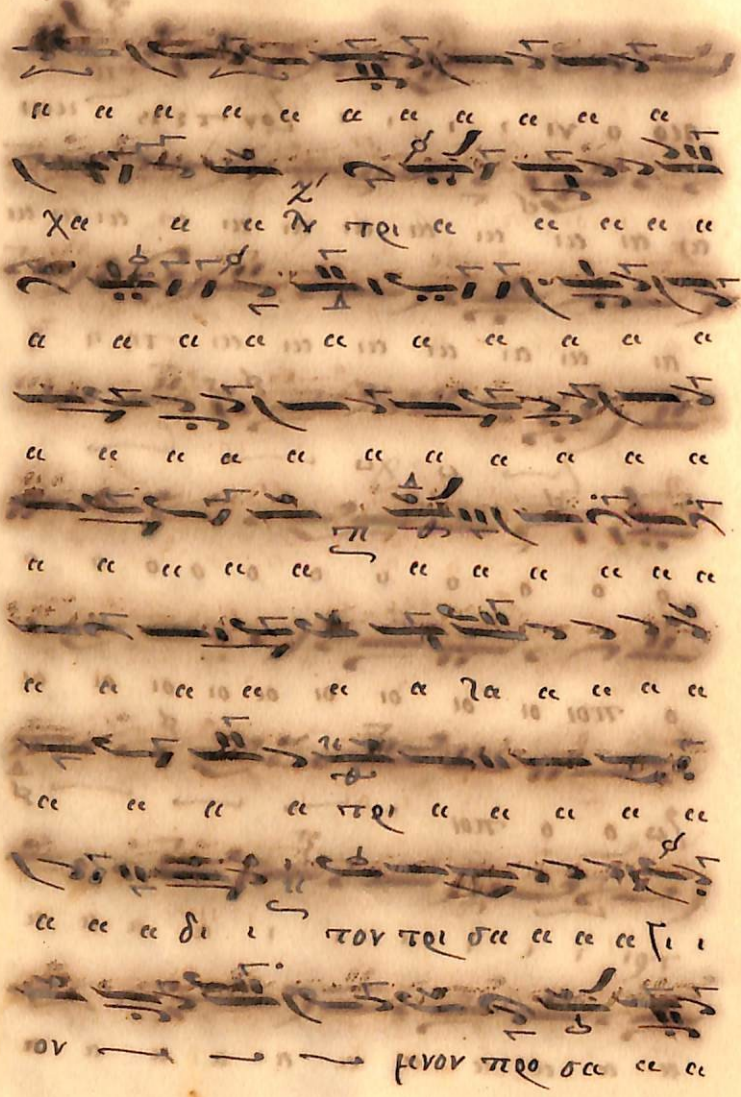 α α α α α α α α α α α
χα α α τρι α α α α α
α α α α α α α α α α
α α α α α α α α α α α
α α α α α α α α α α α
α α α α α α λα α α α α
α α α α τρι α α α α α
α α α δι ι τον τρι σα α α α γι ι
ον μνον προ σα α α